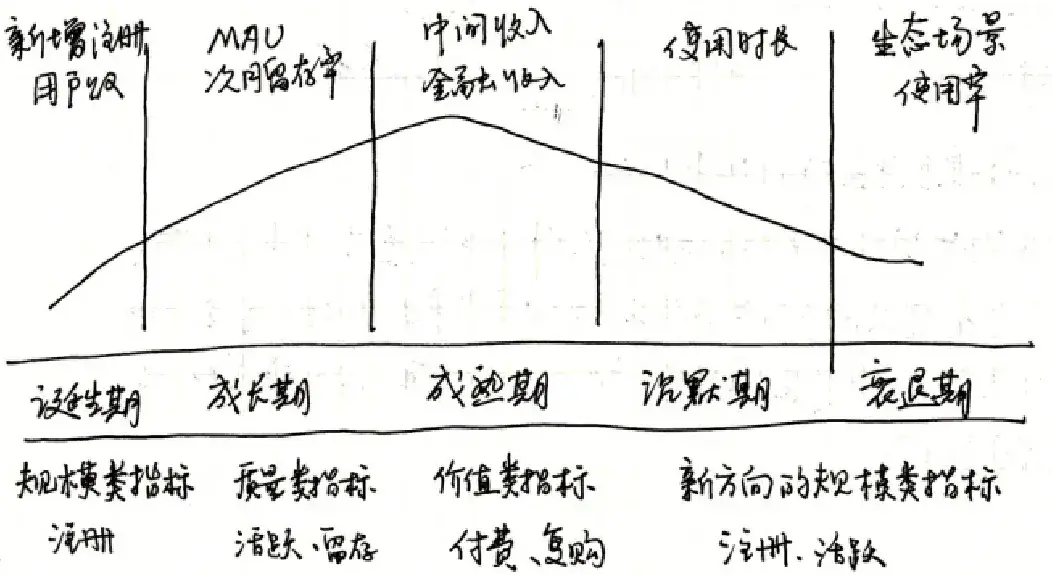 新增注册
用户数
MAU
次月留存率
中间收入
金融收入
使用时长
生态场景
使用率
诞生期
成长期
成熟期
沉默期
衰退期
规模类指标
注册
质量类指标
活跃、留存
价值类指标
付费、复购
新方向的规模类指标
注册、活跃